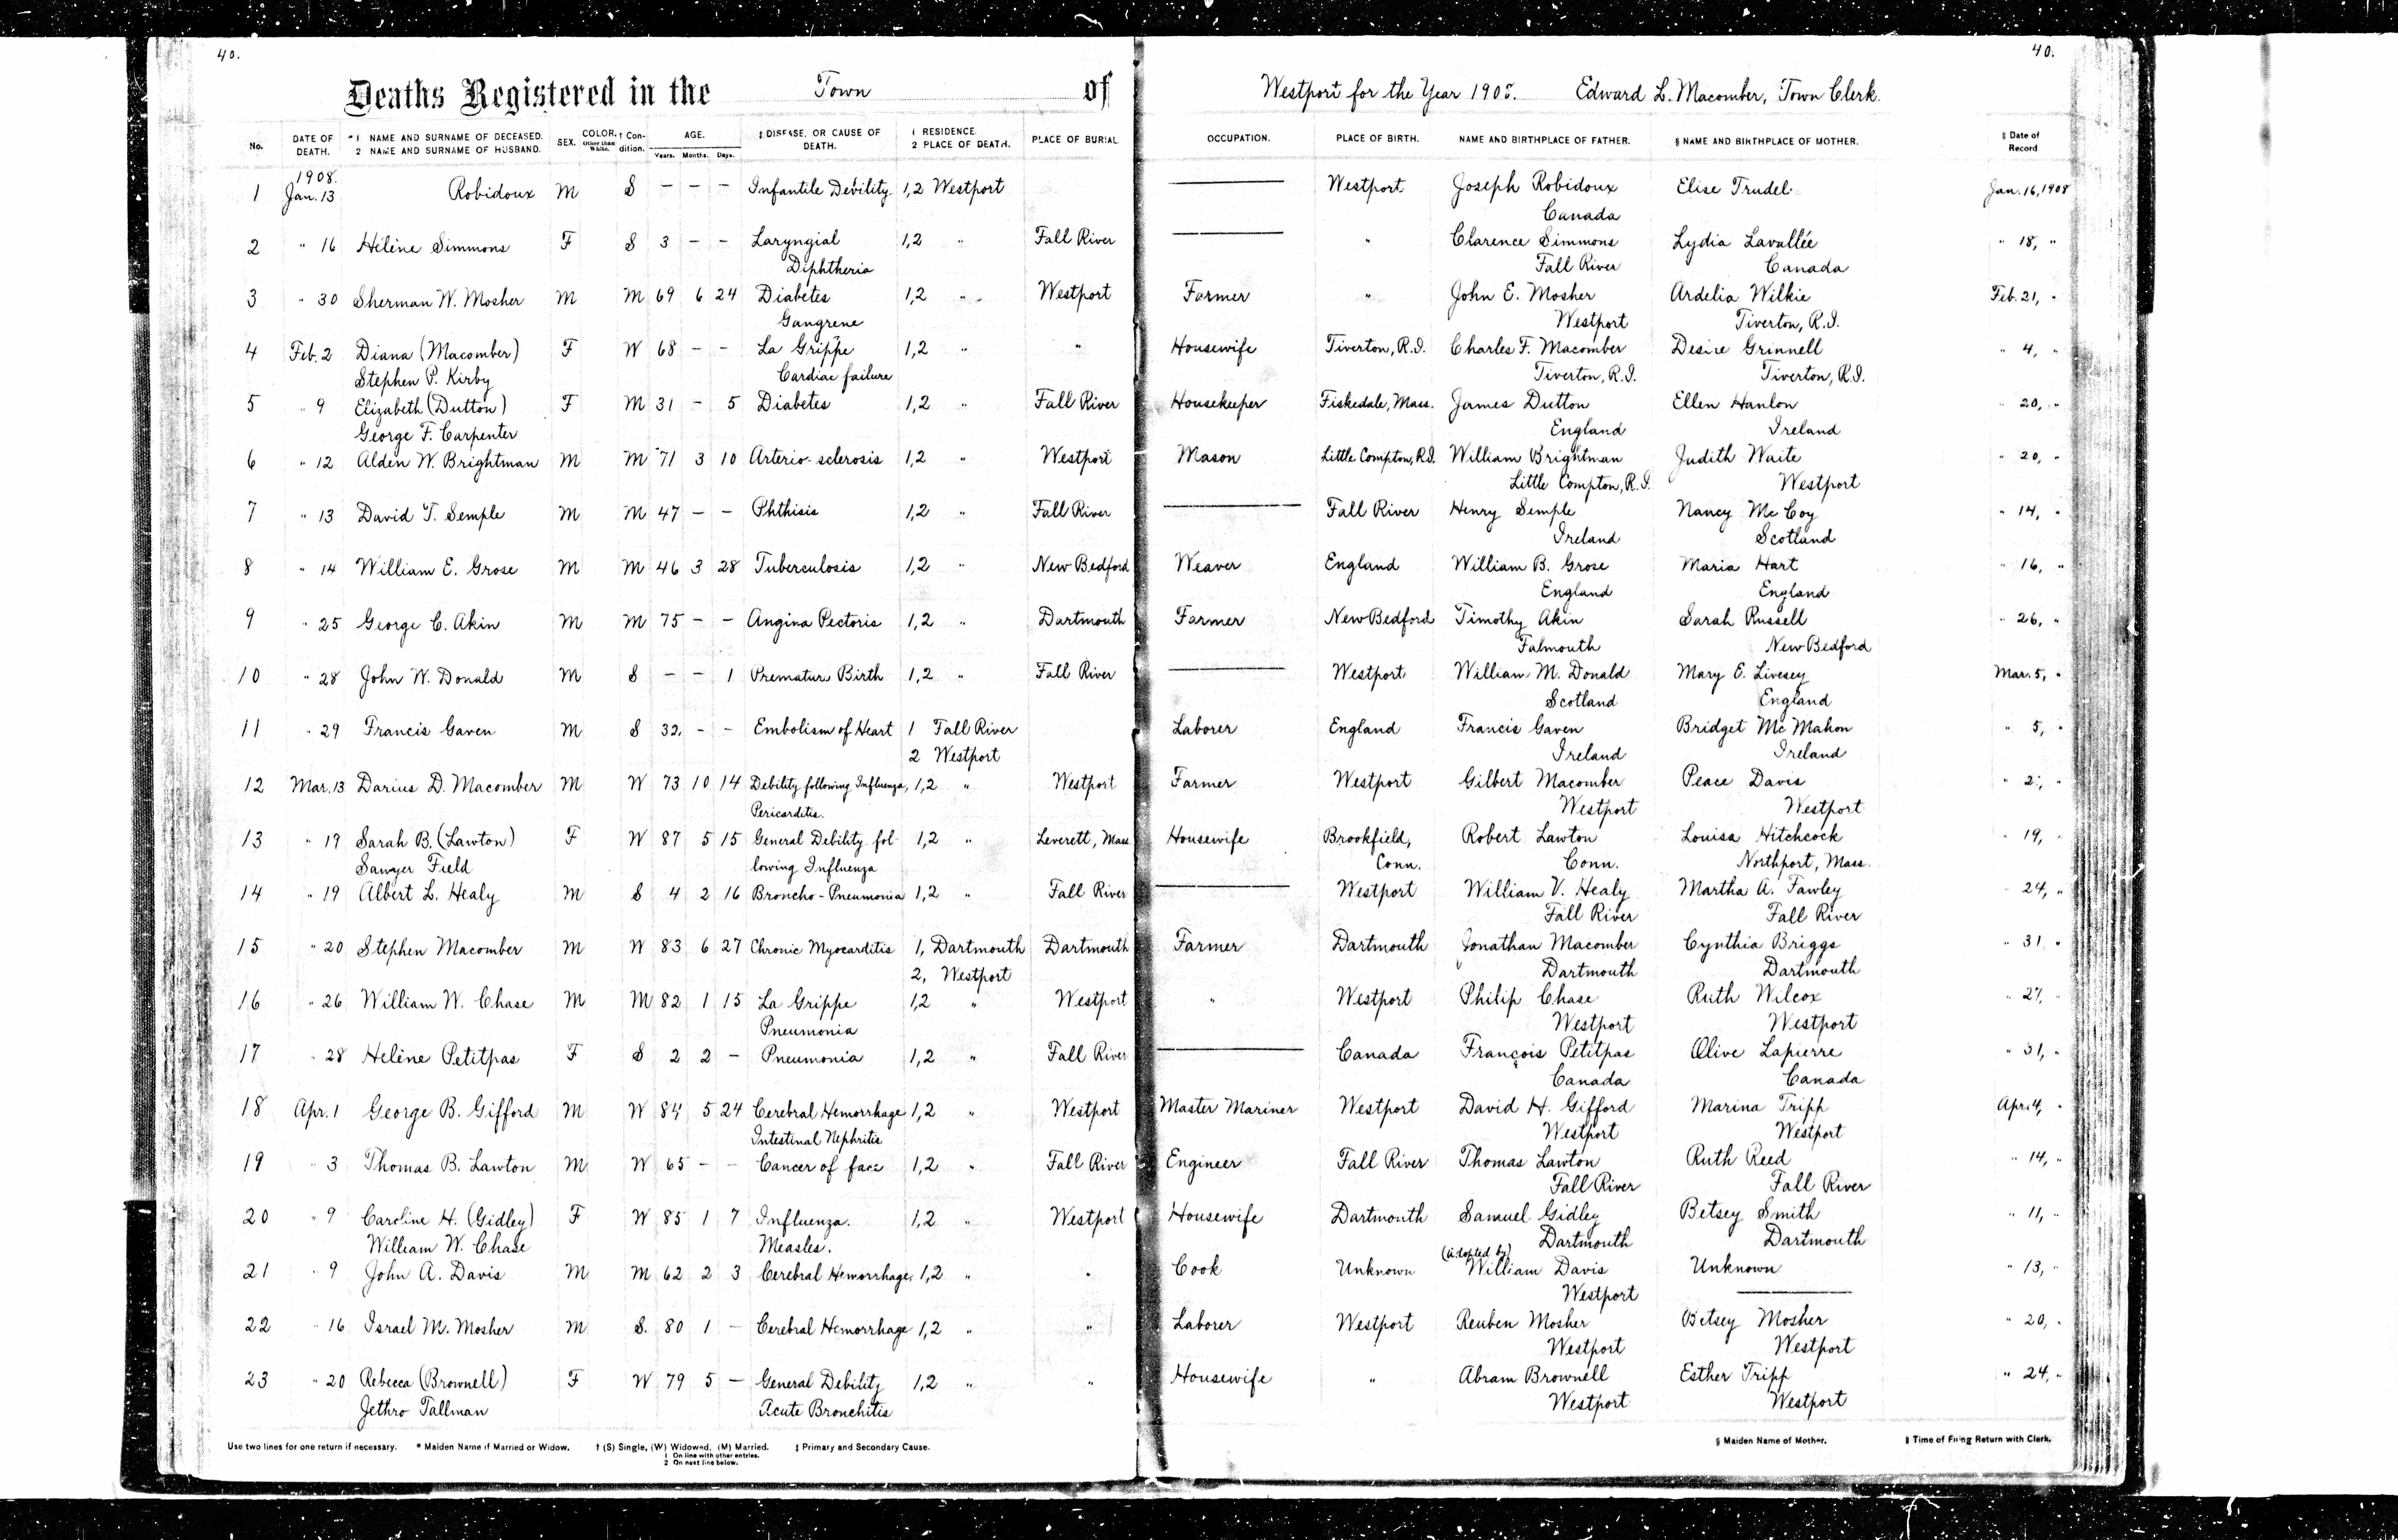 40.
40.
Deaths Registered in the Town of Westport for the Year 1908. Edward L. Macomber, Town Clerk.
No. DATE OF DEATH. *1 NAME AND SURNAME OF DECEASED. 2 NAME AND SURNAME OF HUSBAND. SEX. COLOR. Other than White. † Condition. AGE. Years. Months. Days. ‡ DISEASE, OR CAUSE OF DEATH. 1 RESIDENCE. 2 PLACE OF DEATH. PLACE OF BURIAL OCCUPATION. PLACE OF BIRTH. NAME AND BIRTHPLACE OF FATHER. § NAME AND BIRTHPLACE OF MOTHER. ‖ Date of Record
1908.
1 Jan. 13 Robidoux M S - - - Infantile Debility 1,2 Westport — Westport Joseph Robidoux Elise Trudel Jan. 16, 1908
Canada
2 " 16 Hélène Simmons F S 3 - - Laryngial 1,2 " Fall River — " Clarence Simmons Lydia Lavallée " 18, "
Diphtheria Fall River Canada
3 " 30 Sherman W. Mosher M M 69 6 24 Diabetes 1,2 " Westport Farmer " John E. Mosher Ardelia Wilkie Feb. 21, "
Gangrene Westport Tiverton, R.I.
4 Feb. 2 Diana (Macomber) F W 68 - - La Grippe 1,2 " " Housewife Tiverton, R.I. Charles F. Macomber Desire Grinnell " 4, "
Stephen P. Kirby Cardiac failure Tiverton, R.I. Tiverton, R.I.
5 " 9 Elizabeth (Dutton) F M 31 - 5 Diabetes 1,2 " Fall River Housekeeper Fiskedale, Mass. James Dutton Ellen Hanlon " 20, "
George F. Carpenter England Ireland
6 " 12 Alden W. Brightman M M 71 3 10 Arterio-sclerosis 1,2 " Westport Mason Little Compton, R.I. William Brightman Judith Waite " 20, "
Little Compton, R.I. Westport
7 " 13 David T. Semple M M 47 - - Phthisis 1,2 " Fall River — Fall River Henry Semple Nancy McCoy " 14, "
Ireland Scotland
8 " 14 William E. Grose M M 46 3 28 Tuberculosis 1,2 " New Bedford Weaver England William B. Grose Maria Hart " 16, "
England England
9 " 25 George C. Akin M M 75 - - Angina Pectoris 1,2 " Dartmouth Farmer New Bedford Timothy Akin Sarah Russell " 26, "
Falmouth New Bedford
10 " 28 John W. Donald M S - - 1 Prematur Birth 1,2 " Fall River — Westport William M. Donald Mary E. Livesey Mar. 5, "
Scotland England
11 " 29 Francis Gaven M S 32 - - Embolism of Heart 1 Fall River Laborer England Francis Gaven Bridget McMahon " 5, "
2 Westport Ireland Ireland
12 Mar. 13 Darius D. Macomber M W 73 10 14 Debility following Influenza, 1,2 " Westport Farmer Westport Gilbert Macomber Peace Davis "
Pericarditis. Westport Westport
13 " 19 Sarah B. (Lawton) F W 87 5 15 General Debility fol- 1,2 " Leverett, Mass Housewife Brookfield, Robert Lawton Louisa Hitchcock " 19, "
Sawyer Field lowing Influenza Conn. Conn. Northport, Mass.
14 " 19 Albert L. Healy M S 4 2 16 Broncho-Pneumonia 1,2 " Fall River — Westport William V. Healy Martha A. Fawley " 24, "
Fall River Fall River
15 " 20 Stephen Macomber M W 83 6 27 Chronic Myocarditis 1, Dartmouth Dartmouth Farmer Dartmouth Jonathan Macomber Cynthia Briggs " 31 "
2, Westport Dartmouth Dartmouth
16 " 26 William W. Chase M M 82 1 15 La Grippe 1,2 " Westport " Westport Philip Chase Ruth Wilcox " 27, "
Pneumonia Westport Westport
17 " 28 Helène Petitpas F S 2 2 - Pneumonia 1,2 " Fall River — Canada François Petitpas Olive Lapierre " 31, "
Canada Canada
18 Apr. 1 George B. Gifford M W 84 5 24 Cerebral Hemorrhage 1,2 " Westport Master Mariner Westport David H. Gifford Marina Tripp Apr. 4, "
Intestinal Nephritis Westport Westport
19 " 3 Thomas B. Lawton M W 65 - - Cancer of face 1,2 " Fall River Engineer Fall River Thomas Lawton Ruth Reed " 14, "
Fall River Fall River
20 " 9 Caroline H. (Gidley) F W 85 1 7 Influenza. 1,2 " Westport Housewife Dartmouth Samuel Gidley Betsey Smith " 11, "
William W. Chase Measles. Dartmouth Dartmouth
(adopted by)
21 " 9 John A. Davis M M 62 2 3 Cerebral Hemorrhage 1,2 " " Cook Unknown William Davis Unknown " 13, "
Westport —
22 " 16 Israel M. Mosher M S. 80 1 - Cerebral Hemorrhage 1,2 " " Laborer Westport Reuben Mosher Betsey Mosher " 20, "
Westport Westport
23 " 20 Rebecca (Brownell) F W 79 5 - General Debility 1,2 " " Housewife " Abram Brownell Esther Tripp " 24, "
Jethro Tallman Acute Bronchitis Westport Westport
Use two lines for one return if necessary. * Maiden Name if Married or Widow. † (S) Single, (W) Widowed, (M) Married. ‡ Primary and Secondary Cause. § Maiden Name of Mother. ‖ Time of Filing Return with Clerk.
1 On line with other entries.
2 On next line below.